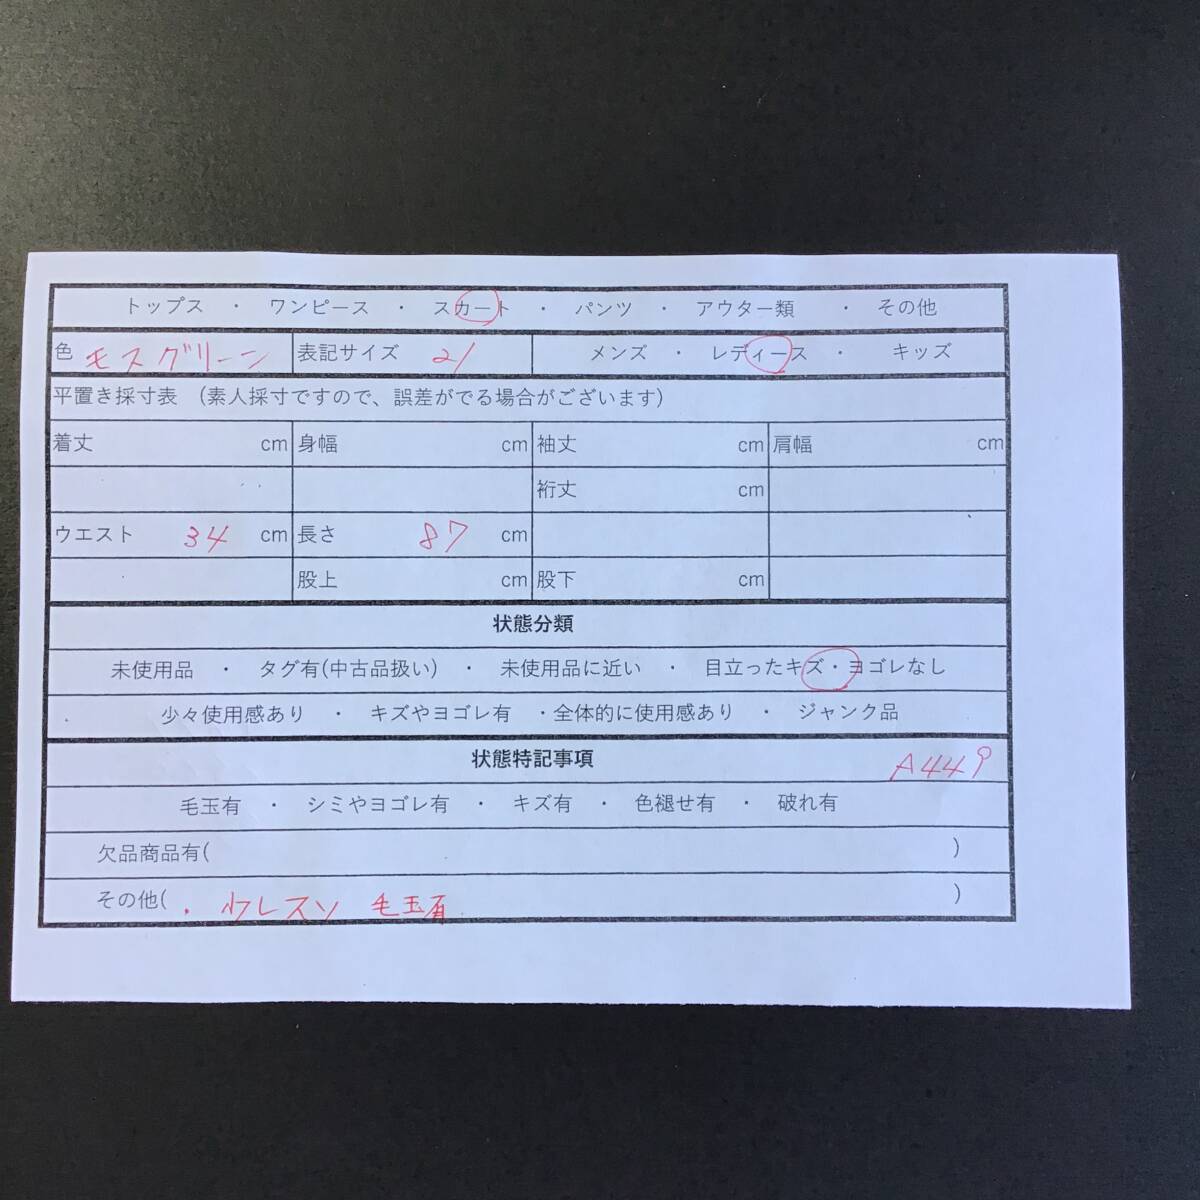 トップス ・ ワンピース ・ スカート ・ パンツ ・ アウター類 ・ その他
色 モスグリーン 表記サイズ 21 メンズ ・ レディース ・ キッズ
平置き採寸表 (素人採寸ですので、誤差がでる場合がございます)
着丈 cm 身幅 cm 袖丈 cm 肩幅 cm
裄丈 cm
ウエスト 34 cm 長さ 87 cm
股上 cm 股下 cm
状態分類
未使用品 ・ タグ有(中古品扱い) ・ 未使用品に近い ・ 目立ったキズ・ヨゴレなし
少々使用感あり ・ キズやヨゴレ有 ・全体的に使用感あり ・ ジャンク品
状態特記事項 A449
毛玉有 ・ シミやヨゴレ有 ・ キズ有 ・ 色褪せ有 ・ 破れ有
欠品商品有( )
その他( ・ 毛玉有 )